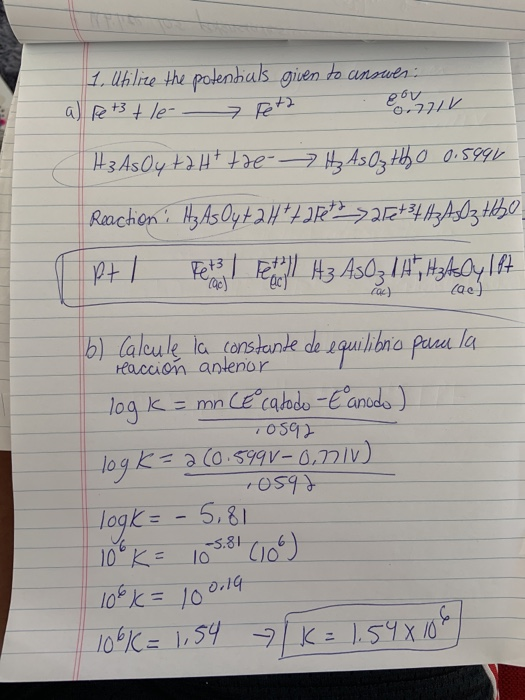 1. Utilize the potentials given to answer:
a) Fe+3 + 1e- → Fe+2 e°V 0.771V
H3AsO4 + 2H+ + 2e- → H3AsO3 + H2O 0.599V
Reaction: H3AsO4 + 2H+ + 2Fe+2 → 2Fe+3 + H3AsO3 + H2O
Pt | Fe+3 (ac) | Fe+2 (ac) || H3AsO3 (ac) | H+, H3AsO4 (ac) | Pt
b) Calcule la constante de equilibrio para la
reacción anterior
log K = mn (E°catodo - E°anodo)
.0592
log K = 2 (0.599V - 0.771V)
.0592
log K = - 5.81
10^6 K = 10^-5.81 (10^6)
10^6 K = 10^0.19
10^6 K = 1.54 → K = 1.54 x 10^6